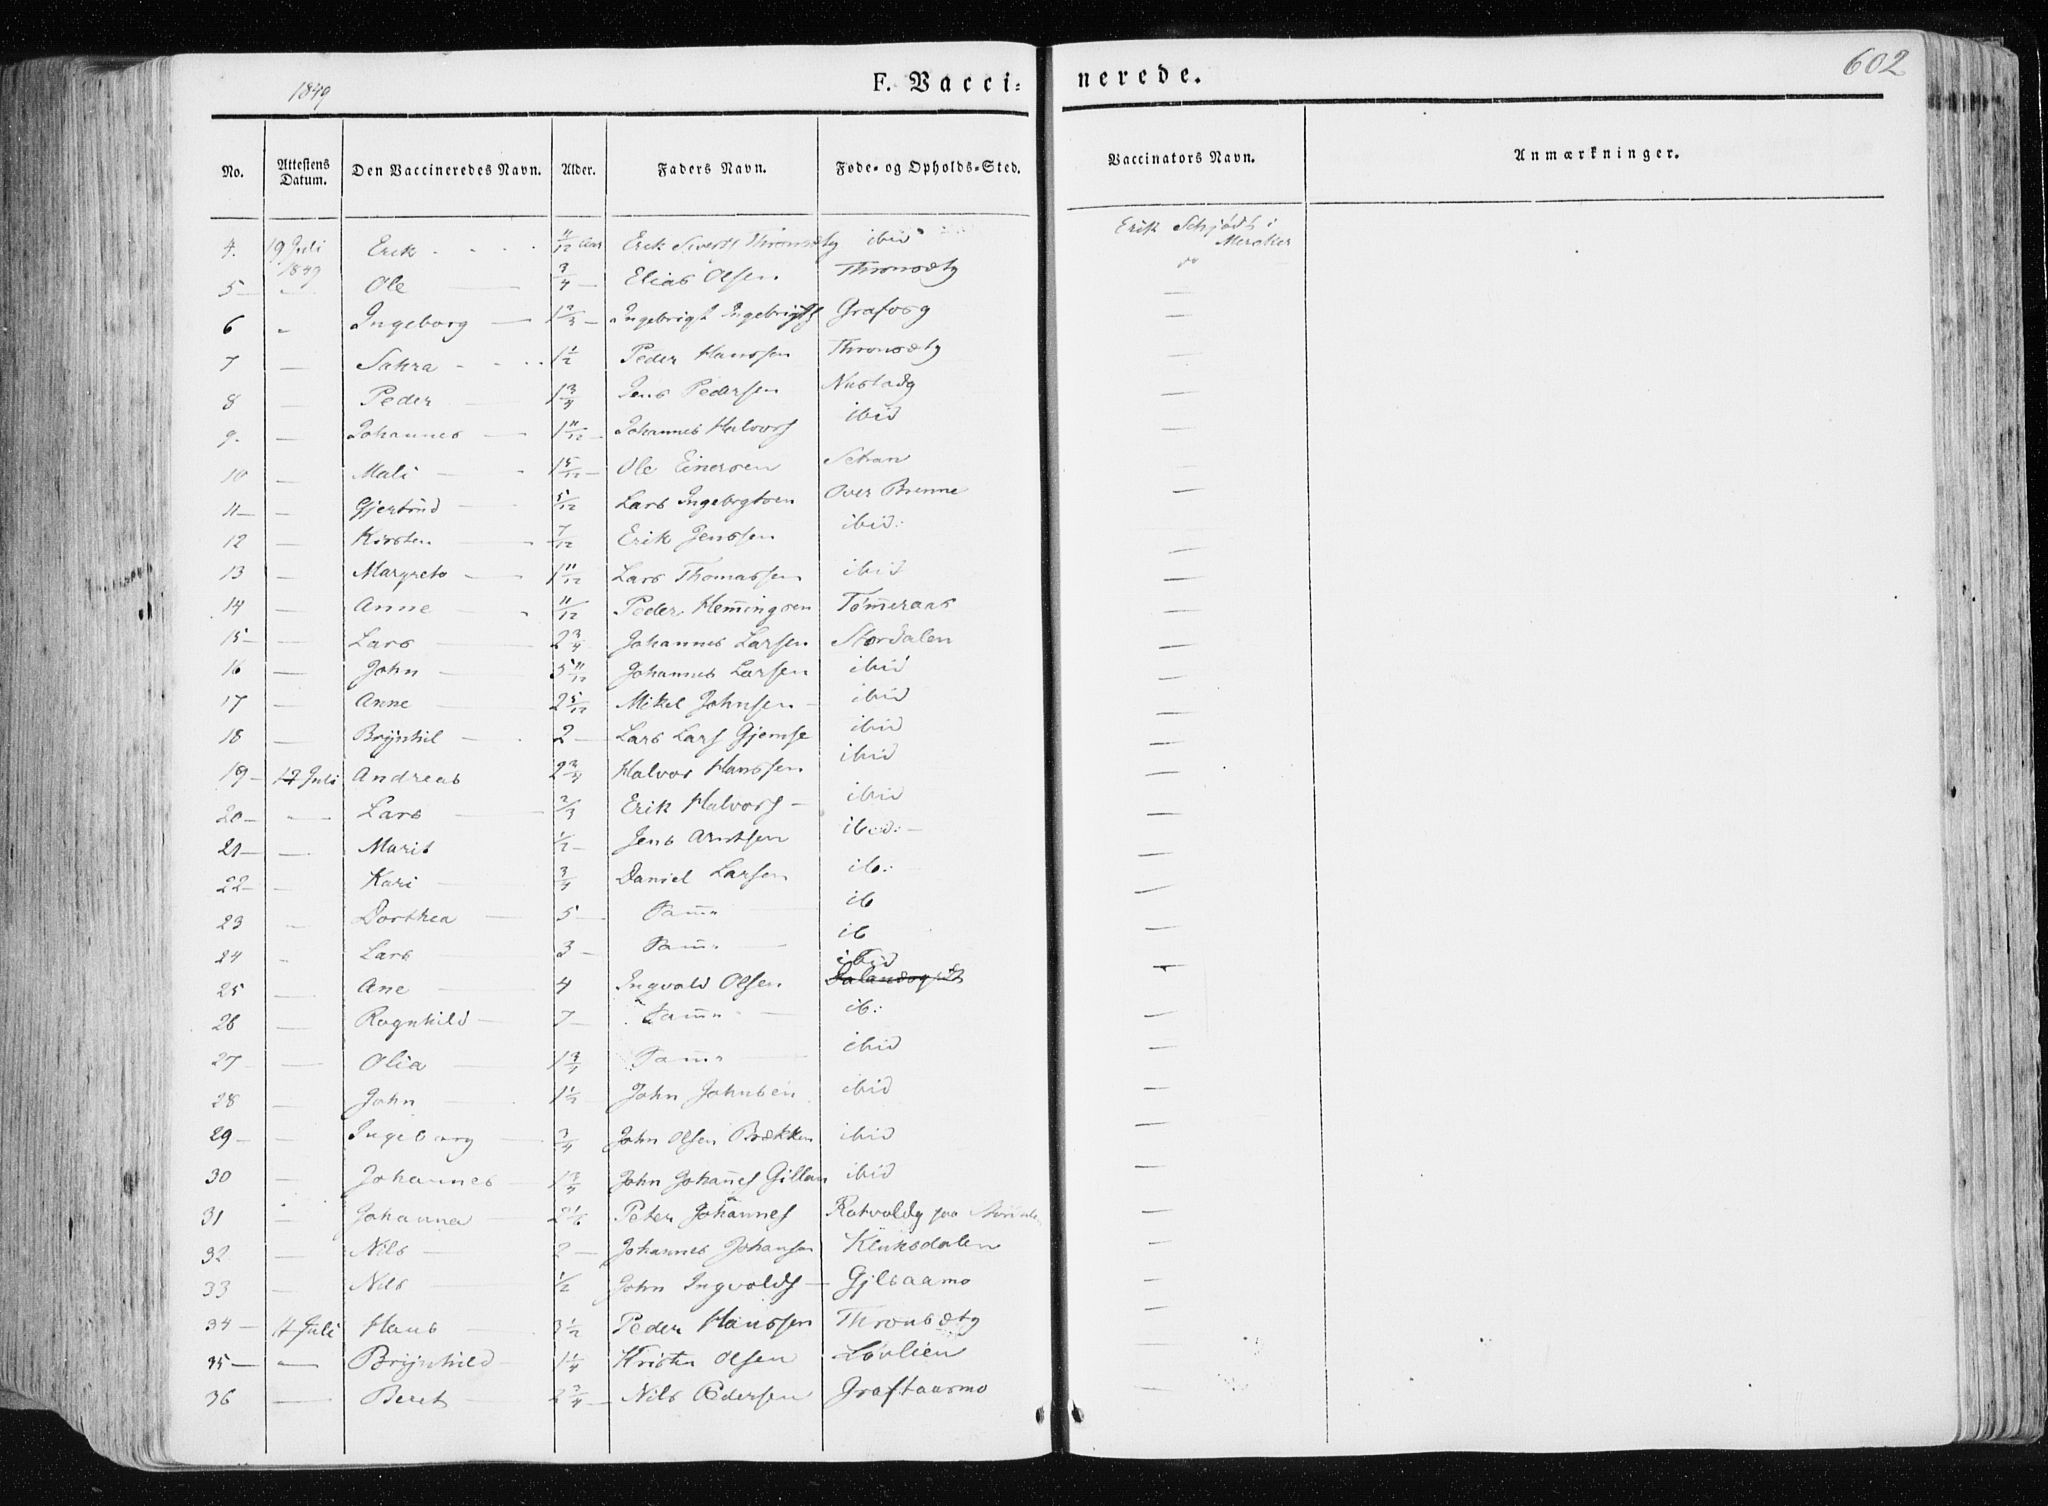 1849 F. Vaccinerede. 602
No. Attestens Datum. Den Vaccineredes Navn. Alder. Faders Navn. Føde- og Opholds-Sted. Vaccinators Navn. Anmærkninger.
4. 19 Juli 1849 Erik 11/12 Aar Erik Sivert Thronsætg ibid Erik Schjødt i Meraker
5 — Ole 3/4 — Elias Olsen Thronsætg do
6 „ Ingeborg — 1 2/3 — Ingebrigt Ingebrigts Grafosg —
7 — Sahra 1 1/2 Peder Hanssen Thronsætg —
8 — Peder 1 3/4 Jens Pedersen Nustadg —
9. — Johannes — 1 11/12 — Johannes Halvors ibid —
10 — Mali — 1 5/12 — Ole Einersen Setran —
11 — Gjertrud — 5/12 Lars Ingebrgtsen Over Brenne —
12 — Kirsten — 7/12 Erik Jenssen ibid: —
13 — Margreta — 1 11/12 Lars Thomassen ibid —
14 — Anne — 11/12 Peder Hemingsen Tømeraas —
15 — Lars — 2 3/4 Johannes Larsen Stordalen —
16 — John — 5 11/12 Johannes Larsen ibid —
17 — Anne — 2 5/12 Mikel Johnsen — ibid —
18 — Brynhil — 2 — Lars Lars Gjemse ibid —
19 — 17 Juli Andreas 2 3/4 Halvor Hanssen ibid —
20 — Lars — 2/3 Erik Halvors — ibid —
21 — Marit 1/2 — Jens Arntsen ibid: —
22 — Kari — 3/4 Daniel Larsen ib: —
23 „ Dorthea — 5 — Same — ib —
24 „ Lars — 3 — Same — ib —
25 — Ane — 4 Ingvald Olsen ibid —
26 — Ragnhild — 7 — Same — ib: —
27 — Olia — 1 3/4 Same — ibid —
28 — John — 1 1/2 John Johnsen ibid —
29 — Ingeborg — 3/4 John Olsen Brækken ibid —
30 — Johannes — 1 3/4 John Johanes Gillan ibid —
31 — Johanna — 2 1/6 Peter Johannes Rotvoldg paa Stordalen —
32. — Nils — 2 — Johannes Johansen Kluksdalen —
33 — Nils — 1/2 John Ingvolds — Gjlsaamo —
34 — 4 Juli Hans — 3 1/2 Peder Hanssen Thronsætg —
35 — Brynhild — 1 1/4 Kristen Olsen Lovlien —
36 — Beret — 2 3/4 — Nils Pedersen Graftaasmo —